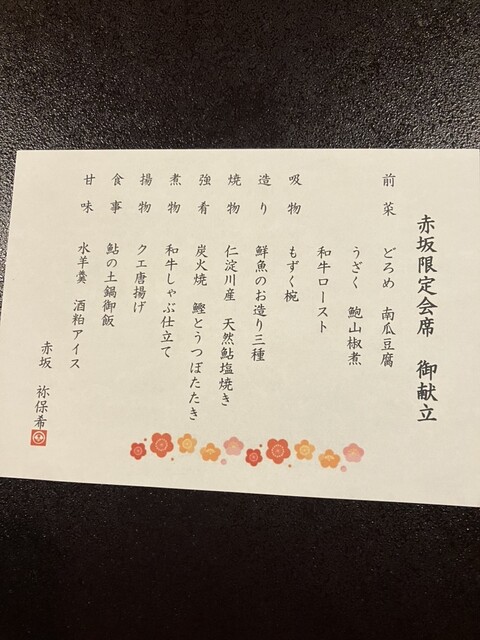 赤坂限定会席 御献立
前菜 どろめ 南瓜豆腐
うざく 鮑山椒煮
和牛ロースト
吸物 もずく椀
造り 鮮魚のお造り三種
焼物 仁淀川産 天然鮎塩焼き
強肴 炭火焼 鰹とうつぼたたき
煮物 和牛しゃぶ仕立て
揚物 クエ唐揚げ
食事 鮎の土鍋御飯
甘味 水羊羹 酒粕アイス
赤坂 祢保希